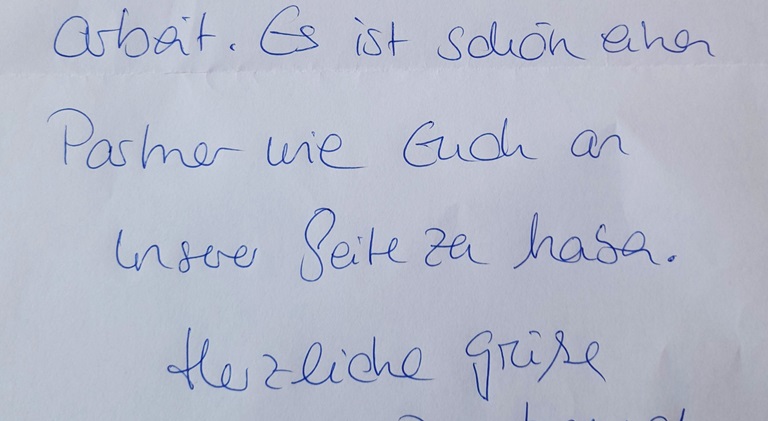 Arbeit. Es ist schön einen
Partner wie Euch an
unserer Seite zu haben.
Herzliche Grüße